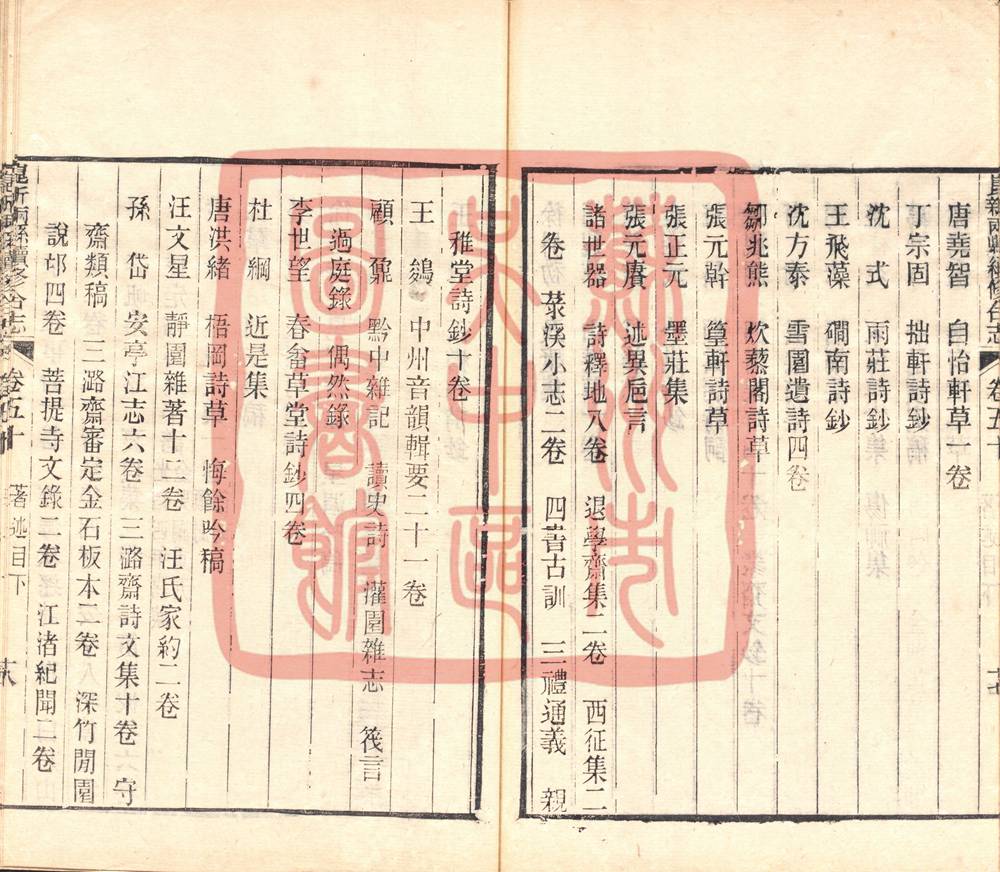 崑新兩縣續修合志 卷五十
唐堯智 自怡軒草一卷
丁宗固 拙軒詩鈔
沈 式 雨莊詩鈔
王飛藻 磵南詩鈔
沈方泰 雪園遺詩四卷
鄒兆熊 炊藜閣詩草
張元幹 篁軒詩草
張正元 墨莊集
張元賡 述異巵言
諸世器 詩釋地八卷 退學齋集二卷 西征集二
卷 菉溪小志二卷 四書古訓 三禮通義 親
雅堂詩鈔十卷
王 鵕 中州音韻輯要二十一卷
顧 鼐 黔中雜記 讀史詩 灌園雜志 筏言
過庭錄 偶然錄
李世望 春畬草堂詩鈔四卷
杜 綱 近是集
唐洪緒 梧岡詩草 悔餘吟稿
汪文星 靜園雜著十二卷 汪氏家約二卷
孫 岱 安亭江志六卷 三潞齋詩文集十卷 守
齋類稿 三潞齋審定金石板本二卷 深竹閒園
說邙四卷 菩提寺文錄二卷 江渚紀聞二卷
崑新兩縣續修合志 卷五十 著述目下 十八